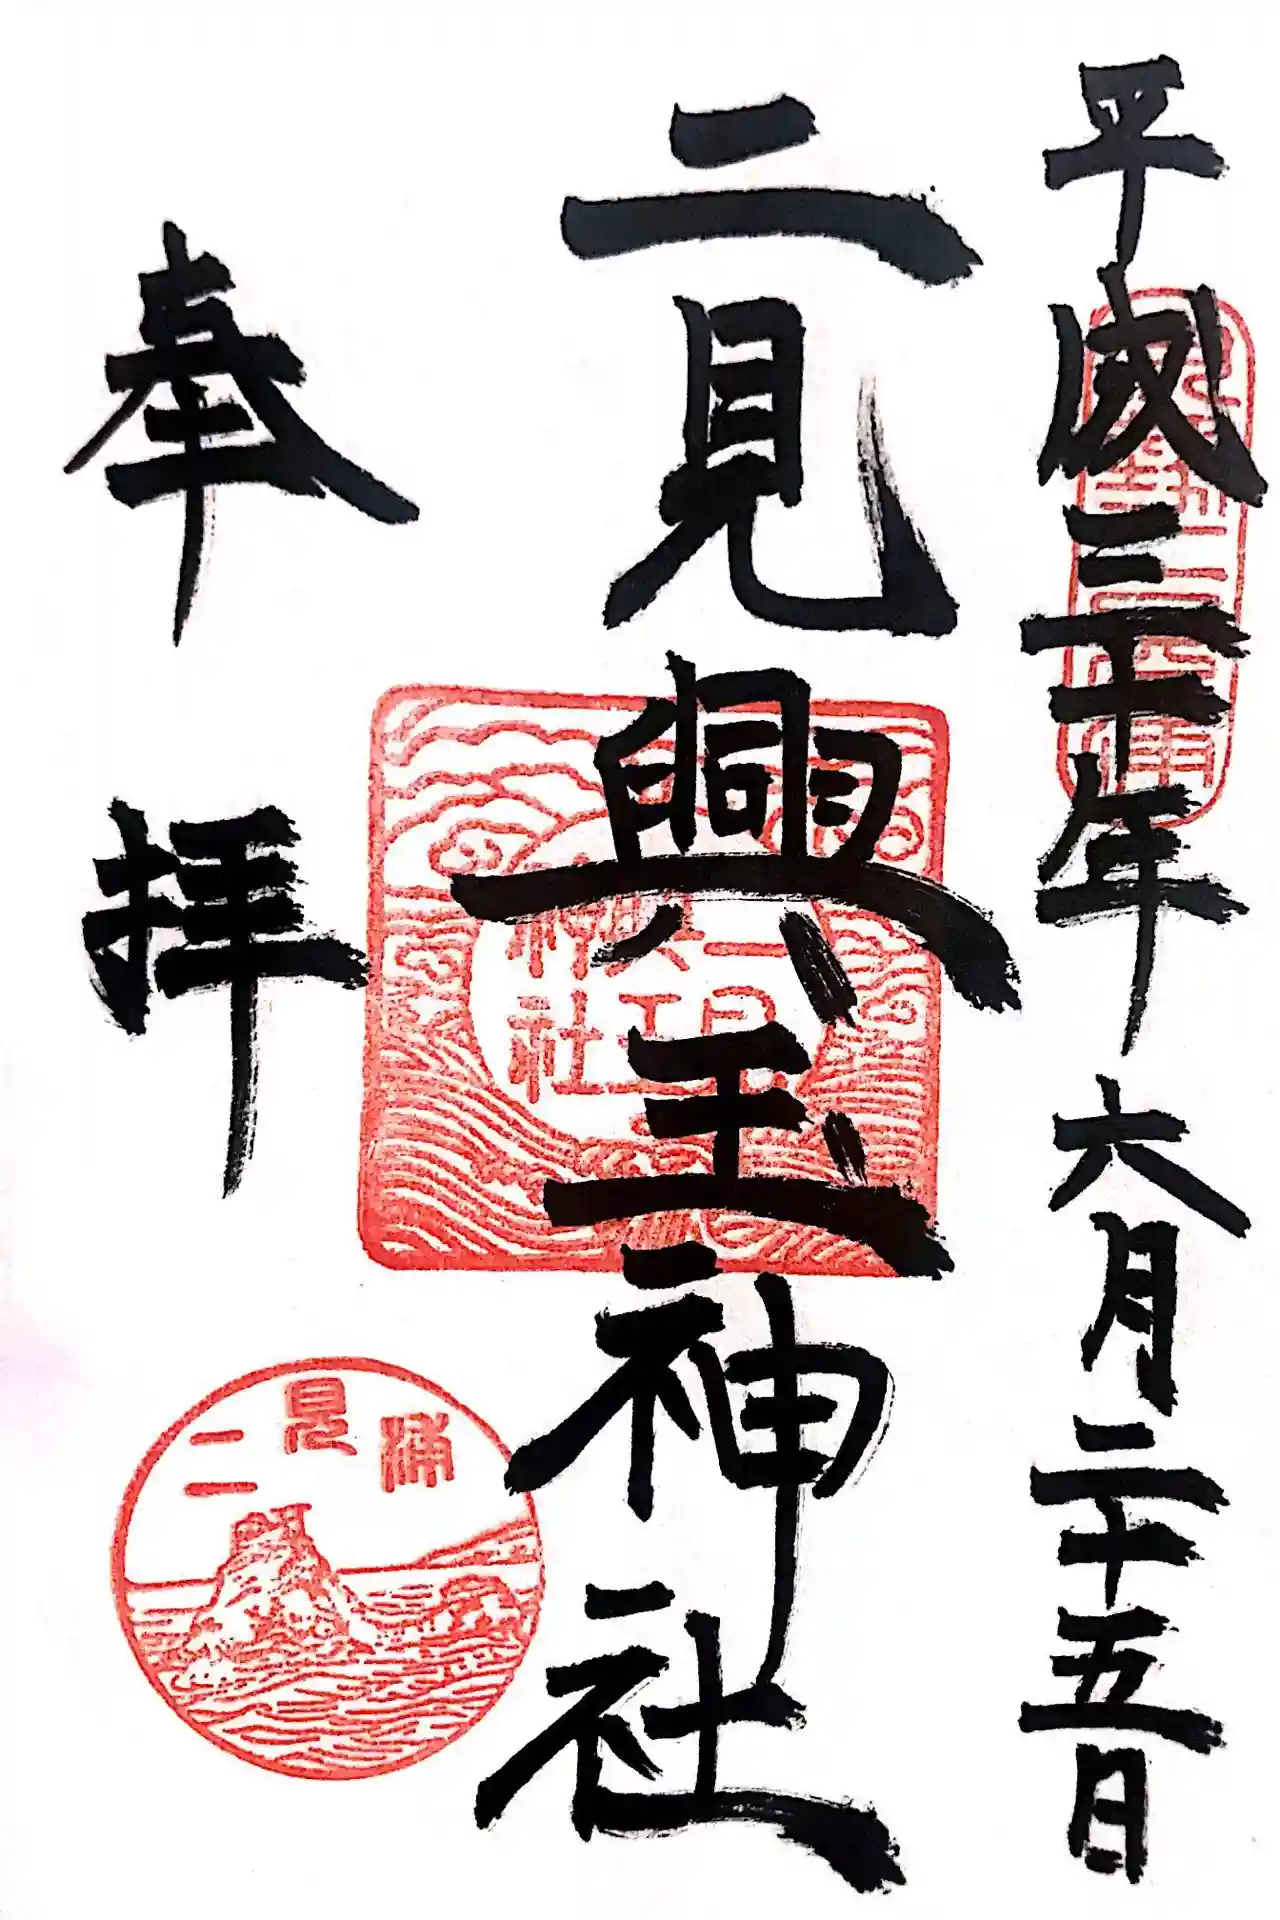 平成三十年六月二十五日
二見興玉神社
奉拝
二見
興玉
神社
二見浦